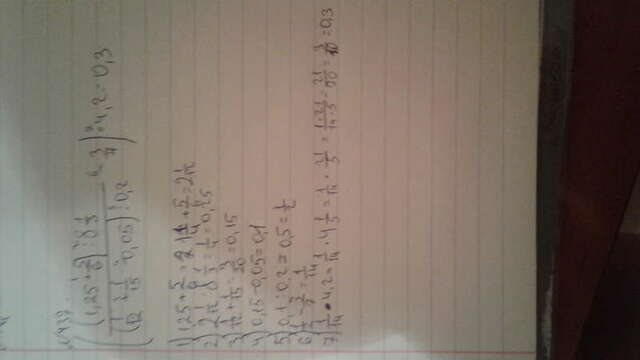 №439.
(1,25 + 5/6) : 8 1/3
(1/12 + 1/15 - 0,05) : 0,2
- 3/7) · 4,2 = 0,3
1) 1,25 + 5/6 = 1 1/4 + 5/6 = 2 1/12
2) 2 1/12 : 8 1/3 = 1/4 = 0,25
3) 1/12 + 1/15 = 3/20 = 0,15
4) 0,15 - 0,05 = 0,1
5) 0,1 : 0,2 = 0,5 = 1/2
6) 1/2 - 3/7 = 1/14
7) 1/14 · 4,2 = 1/14 · 4 1/5 = 1/14 · 21/5 = 1·21/14·5 = 21/70 = 3/10 = 0,3